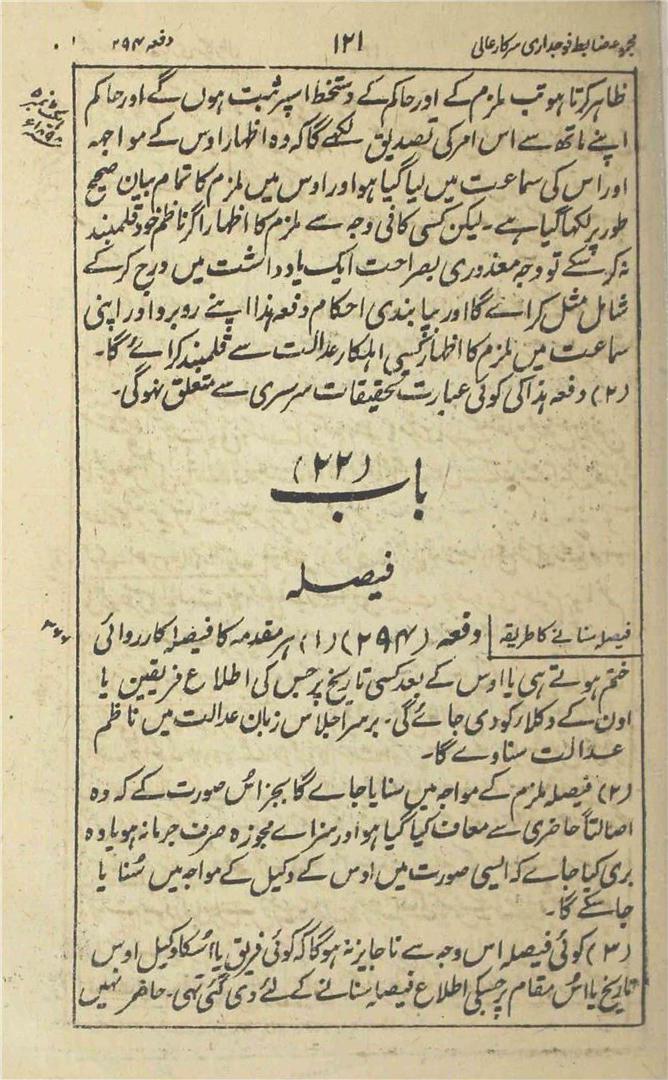 مجموعہ ضابطہ فوجداری سرکار عالی ۱۲۱ دفعہ ۲۹۴
ظاہر کرتا ہو تب ملزم کے اور حاکم کے دستخط اسپر ثبت ہوں گے اور حاکم
اپنے ہاتھ سے اس امر کی تصدیق لکھے گا کہ وہ اظہار اوس کے مواجہہ
اور اس کی سماعت میں لیا گیا ہو اور اوس میں ملزم کا تمام بیان صحیح
طور پر لکھا گیا ہے۔ لیکن کسی کافی وجہ سے ملزم کا اظہار اگر ناظم خود قلمبند
نہ کر سکے تو وجہ معذوری بصراحت ایک یادداشت میں درج کر کے
شامل مثل کرائے گا اور بپابندی احکام دفعہ ہذا اپنے روبرو اور اپنی
سماعت میں ملزم کا اظہار کسی اہلکار عدالت سے قلمبند کرائے گا۔
(۲) دفعہ ہذا کی کوئی عبارت تحقیقات سرسری سے متعلق نہوگی۔
باب (۲۲)
فیصلہ
فیصلہ سنانے کا طریقہ دفعہ (۲۹۴) (۱) ہر مقدمہ کا فیصلہ کارروائی
ختم ہوتے ہی یا اوس کے بعد کسی تاریخ پر جس کی اطلاع فریقین یا
اون کے وکلاء کو دی جائے گی۔ برسر اجلاس زبان عدالت میں ناظم
عدالت سناوے گا۔
(۲) فیصلہ ملزم کے مواجہ میں سنایا جاے گا بجز اس صورت کے کہ وہ
اصالتاً حاضری سے معاف کیا گیا ہو اور سزاے مجوزہ صرف جرمانہ ہو یا وہ
بری کیا جاے کہ ایسی صورت میں اوس کے وکیل کے مواجہ میں سُنا یا
جاسکے گا۔
(۳) کوئی فیصلہ اس وجہ سے ناجایز نہ ہوگا کہ کوئی فریق یا اسکا وکیل اوس
تاریخ یا اس مقام پر جسکی اطلاع فیصلہ سنانے کے لئے دی گئی تہی۔ حاضر نہیں